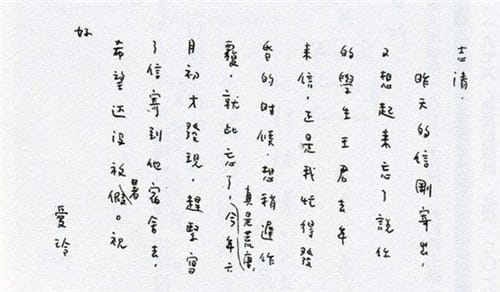 志清·
昨天的信剛寄出，
又想起来忘了說你
的學生王君去年
来信，正是我忙得發
昏的時候，想稍遲作
覆，就此忘了，真是荒唐，今年六
月初才發現，趕緊寫
了信寄到他宿舍去，
希望还沒放暑假。祝
好
愛玲